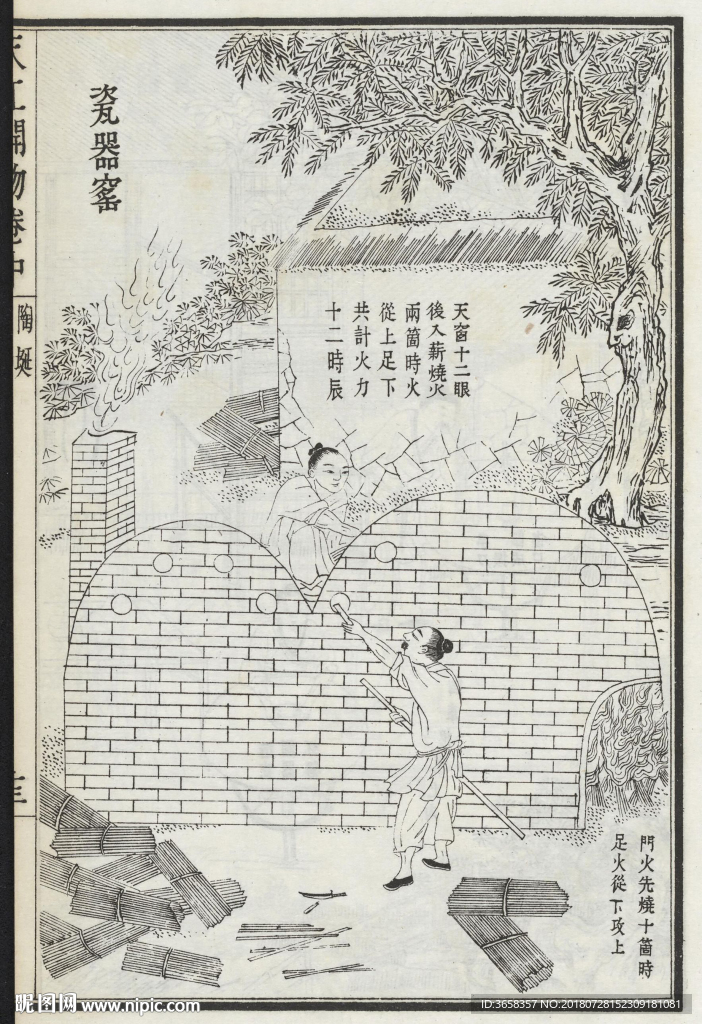 瓷器窑
天窗十二眼
後入薪燒火
兩箇時火
從上足下
共計火力
十二時辰
門火先燒十箇時
足火從下攻上
天工開物卷中
陶埏
昵图网 www.nipic.com
ID:3658357 NO:20180728152309181081